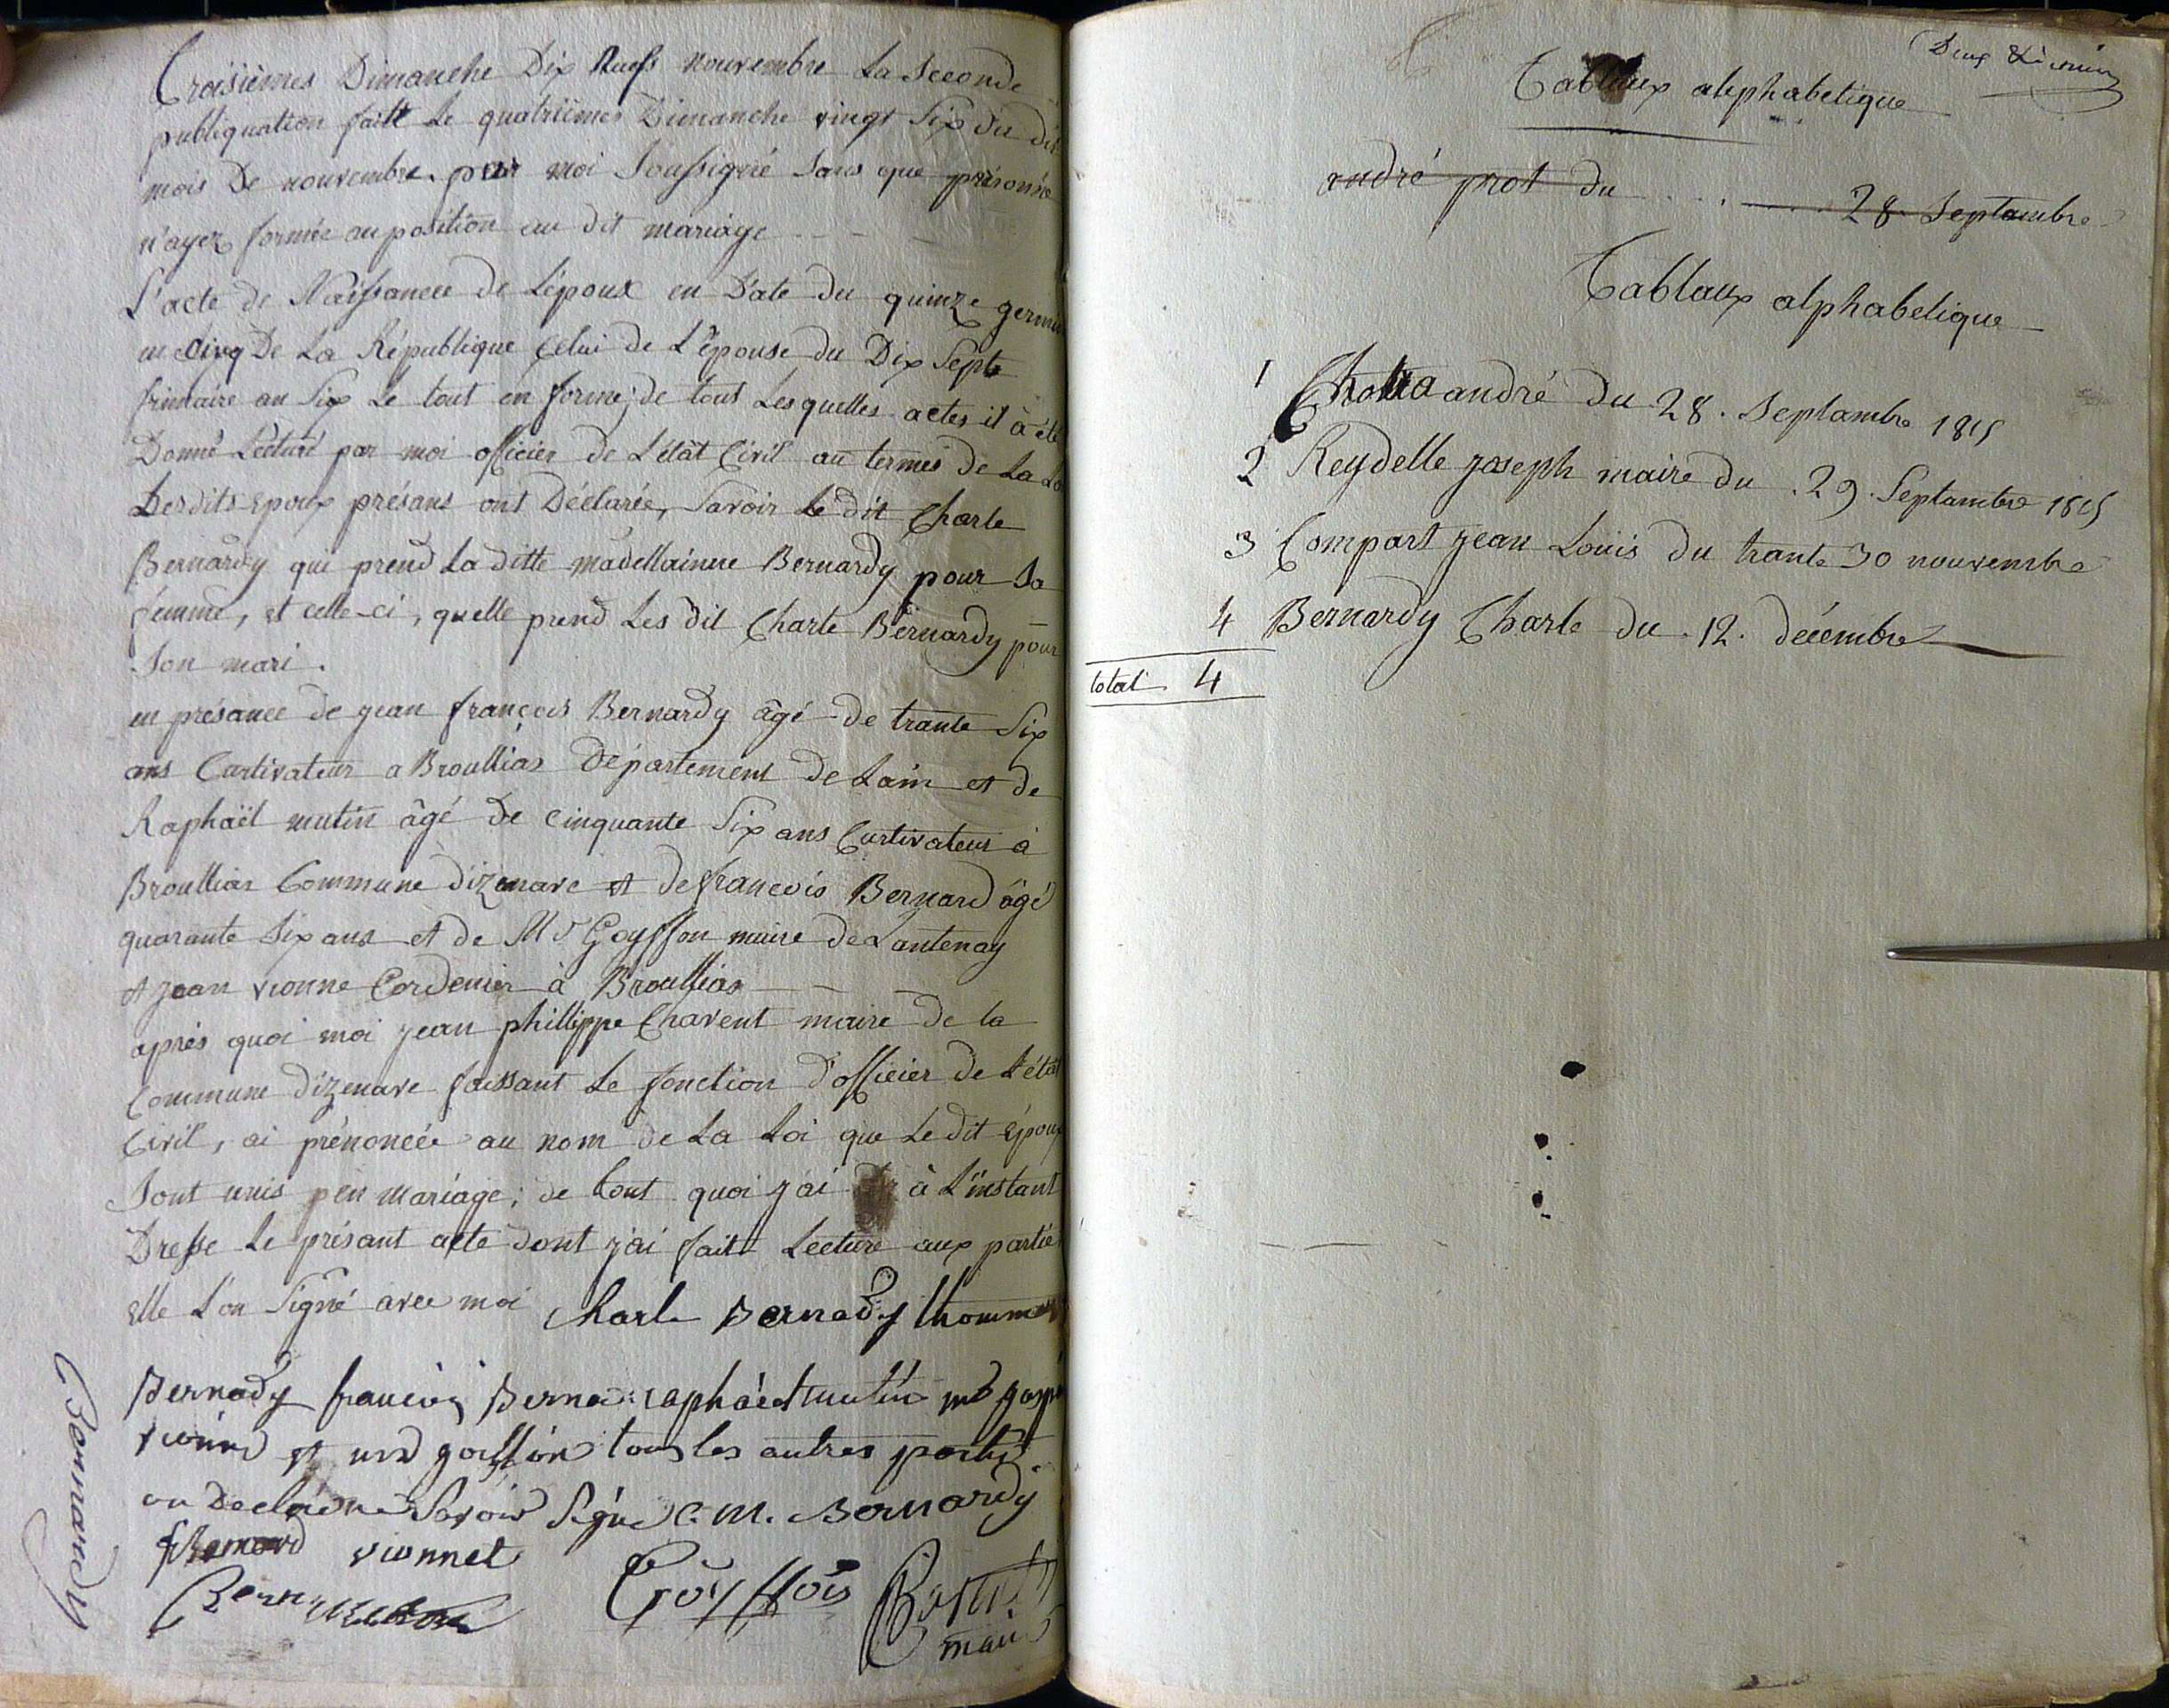 Troisièmes Dimanche Dix Nuefs Nouvembre La Seconde
publiquation faitt le quatrièmes Dimanche vingt Six du dit
mois De nouvembre. par moi Soussigné Sans que présonne
n'ayez formée auposition au dit mariage
L'acte de Naissancee de L'époux en D'ate du quinze germin
en Cinq De La République Celui de L'épouse du Dix Septe
frimaire an Six Le tout en forme; de tout Lesquelles actes il à été
Donné Lecture par moi officier de L'état Civil au termes de La Loi
Lesdits Epoux présans ont Déclarée, Savoir Le dit Charle
Bernardy qui prend La ditte madellainne Bernardy pour Sa
femme, et celle-ci, quelle prend Les dit Charle Bernardy pour
Son mari.
en présance de jean françois Bernardy âgé de trante Six
ans Curtivateur a Broullias Département de Lain et de
Raphaël mutin âgé De cinquante Six ans Curtivateur à
Broullias Commune dizenave et de francois Bernard âgé
quarante Six ans et de Mr Goyffon maire de Lantenay
et jean vionne Cordenier à Broullias
après quoi moi jean phillippe Chavent maire de la
Commune dizenave faissant Le fonction d'officier de L'état
Civil, ai prénoncée au nom de La Loi que Le dit Époux
Sont unis pen mariage; de tout quoi j'ai à L'instant
Dresse Le présant acte dont j'ai fait Lecture aux partie
Elle L'on Signé avec moi Charle Bernady
Bernady francois Berna raphaël mutin
et goiffon tous les autres partis
on Declaére Savoir Signé C. M. Bernardy
vionnet
Goyffon
maire
Bernardy
Deux
Tablaux alephabetique
andré prot du 28 Septambre
Tablaux alphabetique
1 andré du 28. Septambre 1815
2 Reydelle joseph maire du . 29. Septambre 1815
3 Compart jean Louis du trante 30 nouvembre
4 Bernardy Charle du . 12. décembre
total 4